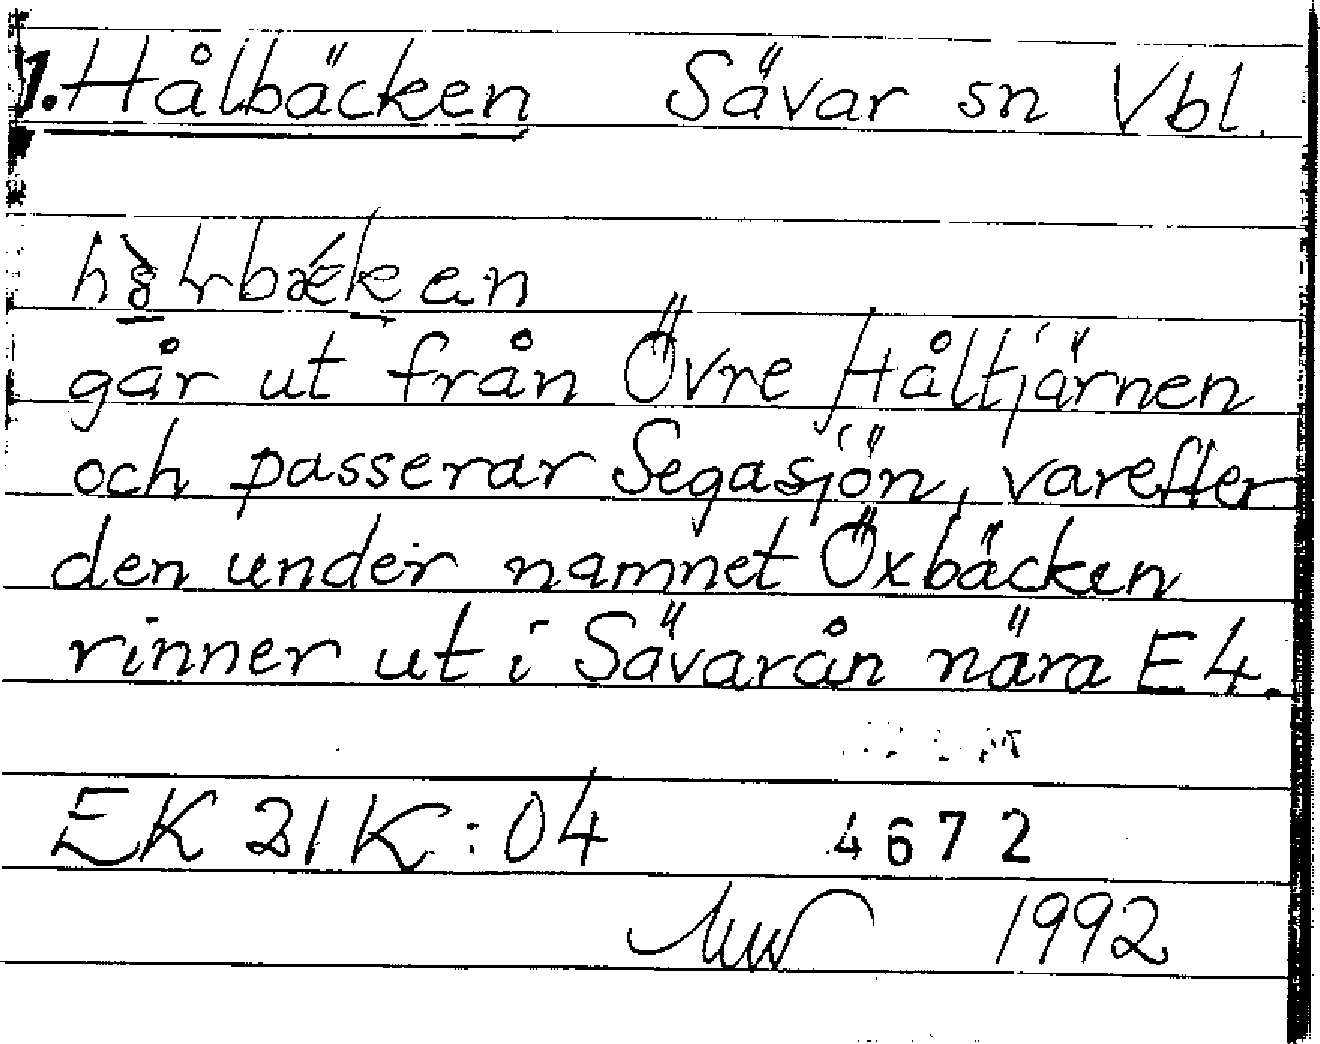 1. Hålbäcken Sävar sn Vbl.
går ut från Övre Håltjärnen
och passerar Segasjön, varefter
den under namnet Öxbäcken
rinner ut i Sävarån nära E4.
EK 21K:04 4672
1992